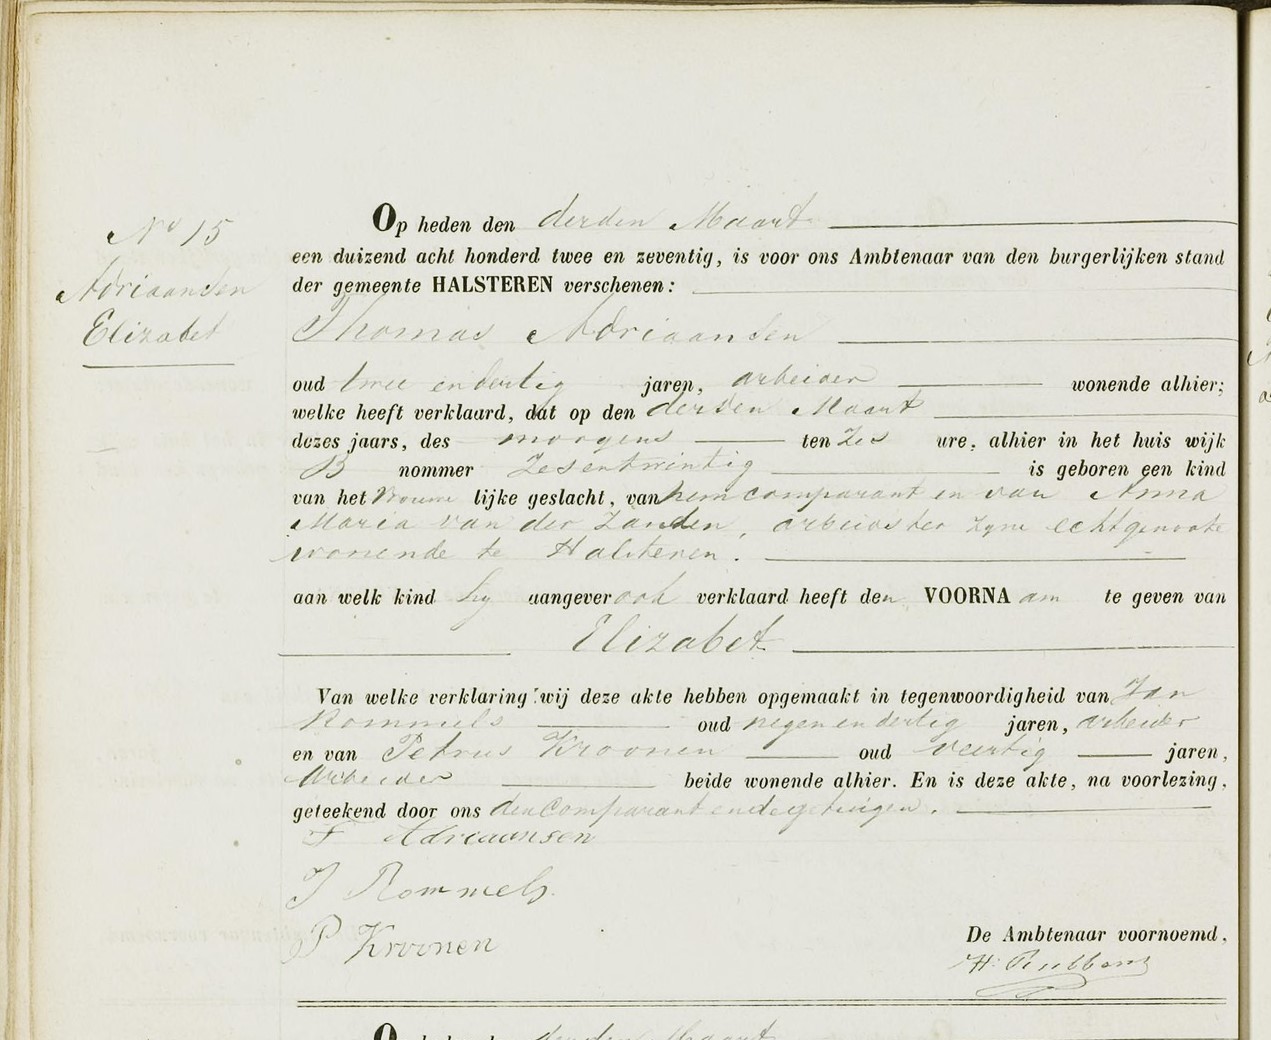 No 15
Adriaansen
Elizabet
Op heden den derden Maart
een duizend acht honderd twee en zeventig, is voor ons Ambtenaar van den burgerlijken stand
der gemeente HALSTEREN verschenen:
Thomas Adriaansen
oud twee endertig jaren, arbeider wonende alhier;
welke heeft verklaard, dat op den derden Maart
dezes jaars, des morgens ten Zes ure, alhier in het huis wijk
B nommer Zesentwintig is geboren een kind
van het Vrouwe lijke geslacht, van hem comparant en van Anna
Maria van der Zanden, arbeidster zyne echtgenoote
wonende te Halsteren.
aan welk kind hy aangever ook verklaard heeft den VOORNA am te geven van
Elizabet
Van welke verklaring wij deze akte hebben opgemaakt in tegenwoordigheid van Jan
Rommels oud negen en dertig jaren, arbeider
en van Petrus Kroonen oud veertig jaren,
Arbeider beide wonende alhier. En is deze akte, na voorlezing,
geteekend door ons den Comparant en de getuigen.
Adriaansen
J Rommels
P Kroonen
De Ambtenaar voornoemd,
H.
derden Maart